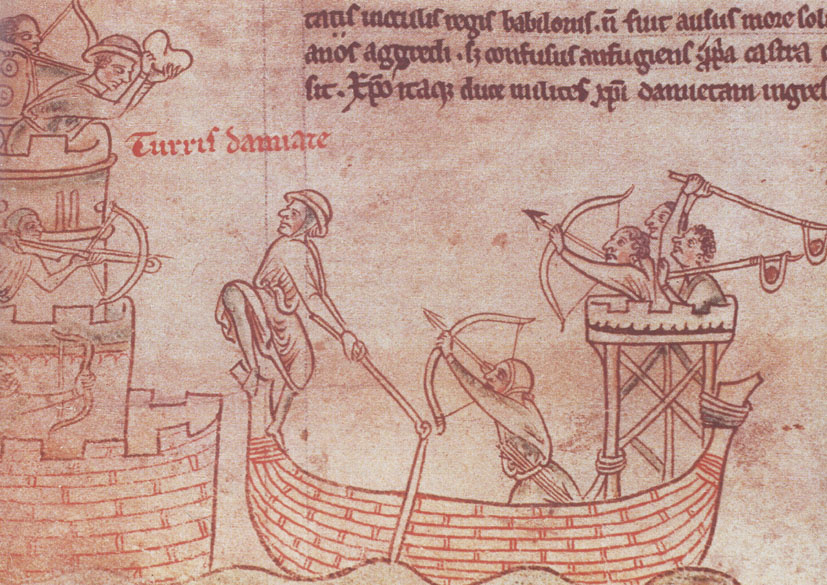 tatis inculis regis babilonis. n̄ fuit ausus more sol
anos aggredi. sꝫ confusus aufugiens castra
sit. Xpo itaqꝫ duce milites xpi damietam ingres
Turris damiate